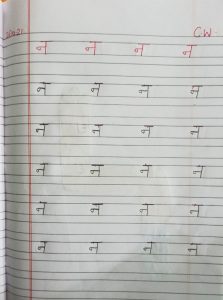 C.W.
न न न न
न न न न
न न न न
न न न न
न न न न
न न न न